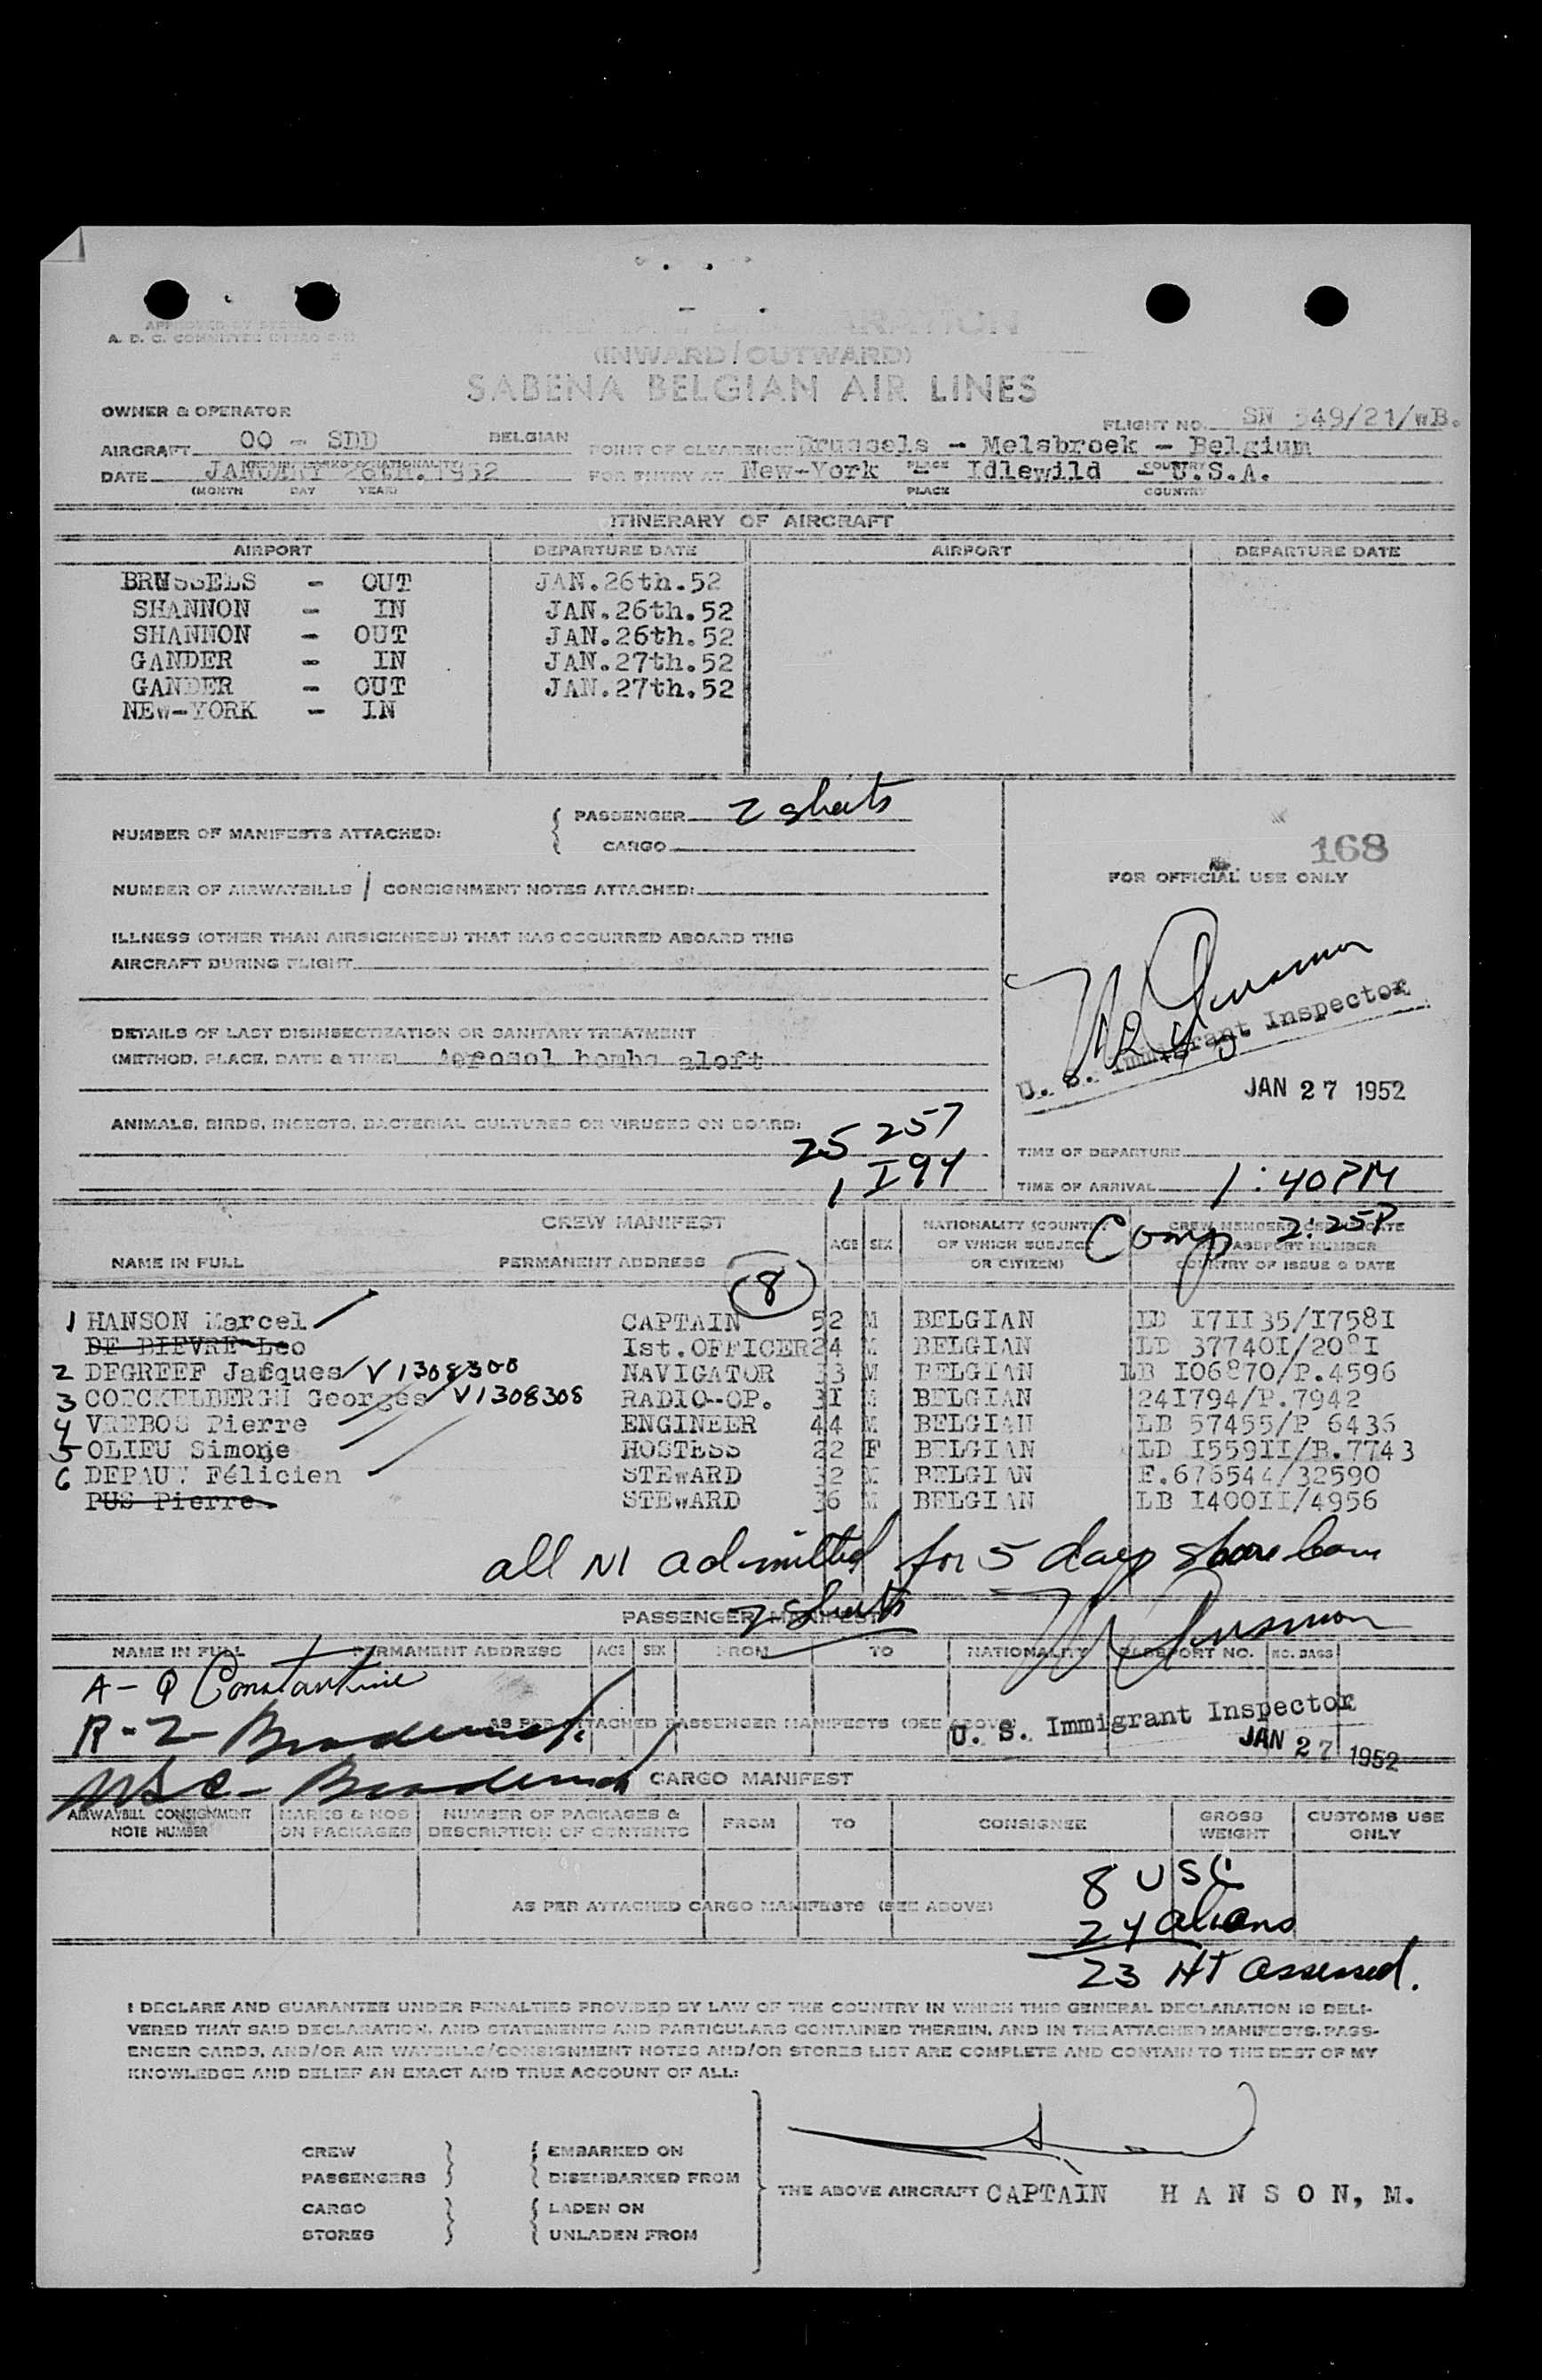 A. D. C. COMMITTEE
(INWARD/OUTWARD)
SABENA BELGIAN AIR LINES
OWNER & OPERATOR
FLIGHT NO. SN 549/21/WB.
AIRCRAFT OO - SDD BELGIAN
POINT OF CLEARENCE Brussels - Melsbroek - Belgium
DATE JANUARY 26th. 1952
FOR ENTRY AT New-York - Idlewild - U.S.A.
PLACE COUNTRY
(MONTH DAY YEAR)
PLACE COUNTRY
ITINERARY OF AIRCRAFT
AIRPORT DEPARTURE DATE AIRPORT DEPARTURE DATE
BRUSSELS - OUT JAN.26th.52
SHANNON - IN JAN.26th.52
SHANNON - OUT JAN.26th.52
GANDER - IN JAN.27th.52
GANDER - OUT JAN.27th.52
NEW-YORK - IN
NUMBER OF MANIFESTS ATTACHED:
PASSENGER 2 sheets
CARGO
168
FOR OFFICIAL USE ONLY
NUMBER OF AIRWAYBILLS / CONSIGNMENT NOTES ATTACHED:
ILLNESS (OTHER THAN AIRSICKNESS) THAT HAS OCCURRED ABOARD THIS
AIRCRAFT DURING FLIGHT
U. S. Immigrant Inspector
JAN 27 1952
DETAILS OF LAST DISINSECTIZATION OR SANITARY TREATMENT
(METHOD, PLACE, DATE & TIME) Aerosol bombs aloft
ANIMALS, BIRDS, INSECTS, BACTERIAL CULTURES OR VIRUSES ON BOARD:
25 257
1 I94
TIME OF DEPARTURE
TIME OF ARRIVAL 1:40PM
Comp 2:25P
CREW MANIFEST
NAME IN FULL PERMANENT ADDRESS AGE SEX NATIONALITY (COUNTRY OF WHICH SUBJECT OR CITIZEN) CREW MEMBERS CERTIFICATE PASSPORT NUMBER COUNTRY OF ISSUE & DATE
8
1 HANSON Marcel CAPTAIN 52 M BELGIAN LD I7II35/I758I
DE DIEVRE Leo Ist.OFFICER 24 M BELGIAN LD 37740I/208I
2 DEGREEF Jacques V1308300 NAVIGATOR 33 M BELGIAN LB I06870/P.4596
3 COECKELBERGH Georges V1308308 RADIO-OP. 3I M BELGIAN 24I794/P.7942
4 VREBOS Pierre ENGINEER 44 M BELGIAN LB 57455/P 6436
5 OLIEU Simone HOSTESS 22 F BELGIAN LD I559II/B.7743
6 DEPAUW Félicien STEWARD 32 M BELGIAN F.676544/32590
PUS Pierre STEWARD 36 M BELGIAN LB I400II/4956
all NI admitted for 5 days shore leave
PASSENGER MANIFEST
2 sheets
NAME IN FULL PERMANENT ADDRESS AGE SEX FROM TO NATIONALITY PASSPORT NO. NO. BAGS
A - Q Constantine
AS PER ATTACHED PASSENGER MANIFESTS (SEE ABOVE)
R - Z -
U. S. Immigrant Inspector
JAN 27 1952
USC -
CARGO MANIFEST
AIRWAYBILL CONSIGNMENT NOTE NUMBER MARKS & NOS ON PACKAGES NUMBER OF PACKAGES & DESCRIPTION OF CONTENTS FROM TO CONSIGNEE GROSS WEIGHT CUSTOMS USE ONLY
AS PER ATTACHED CARGO MANIFESTS (SEE ABOVE)
8 USC
24 aliens
23 HT assessed.
I DECLARE AND GUARANTEE UNDER PENALTIES PROVIDED BY LAW OF THE COUNTRY IN WHICH THIS GENERAL DECLARATION IS DELI-
VERED THAT SAID DECLARATION, AND STATEMENTS AND PARTICULARS CONTAINED THEREIN, AND IN THE ATTACHED MANIFESTS, PASS-
ENGER CARDS, AND/OR AIR WAYBILLS/CONSIGNMENT NOTES AND/OR STORES LIST ARE COMPLETE AND CONTAIN TO THE BEST OF MY
KNOWLEDGE AND BELIEF AN EXACT AND TRUE ACCOUNT OF ALL:
CREW EMBARKED ON
PASSENGERS DISEMBARKED FROM
THE ABOVE AIRCRAFT CAPTAIN HANSON, M.
CARGO LADEN ON
STORES UNLADEN FROM